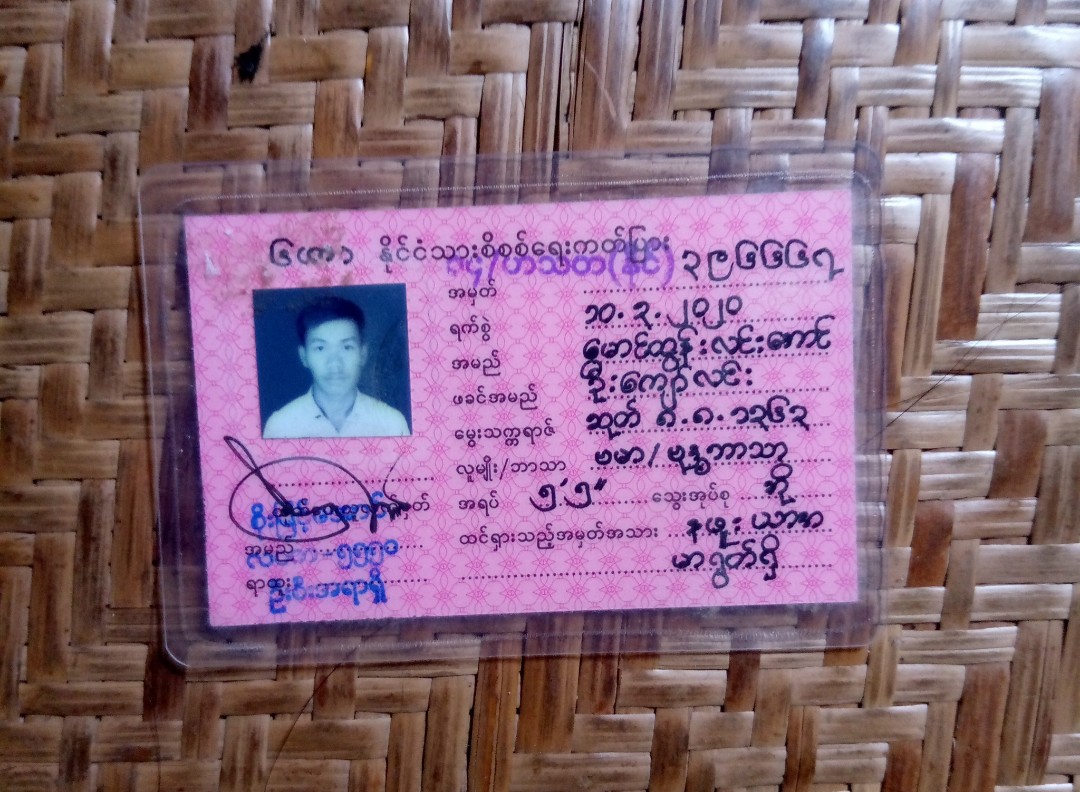 နိုင်ငံသားစိစစ်ရေးကတ်ပြား
အမှတ် ၁၄/ဟသတ(နိုင်) ၃၉၆၆၆၇
ရက်စွဲ ၁၀.၃.၂၀၂၀
အမည် မောင်ထွန်းလင်းကောင်
ဖခင်အမည် ဦးကျော်လင်း
မွေးသက္ကရာဇ် ဆုတ် ၈.၈.၁၃၆၃
လူမျိုး/ဘာသာ ဗမာ/ဗုဒ္ဓဘာသာ
အရပ် ၅'၅" သွေးအုပ်စု ဘို
ထင်ရှားသည့်အမှတ်အသား နဖူးယာက
မာရွတ်ရှိ
အမည်
ရာထူး ဦးစီးအရာရှိ